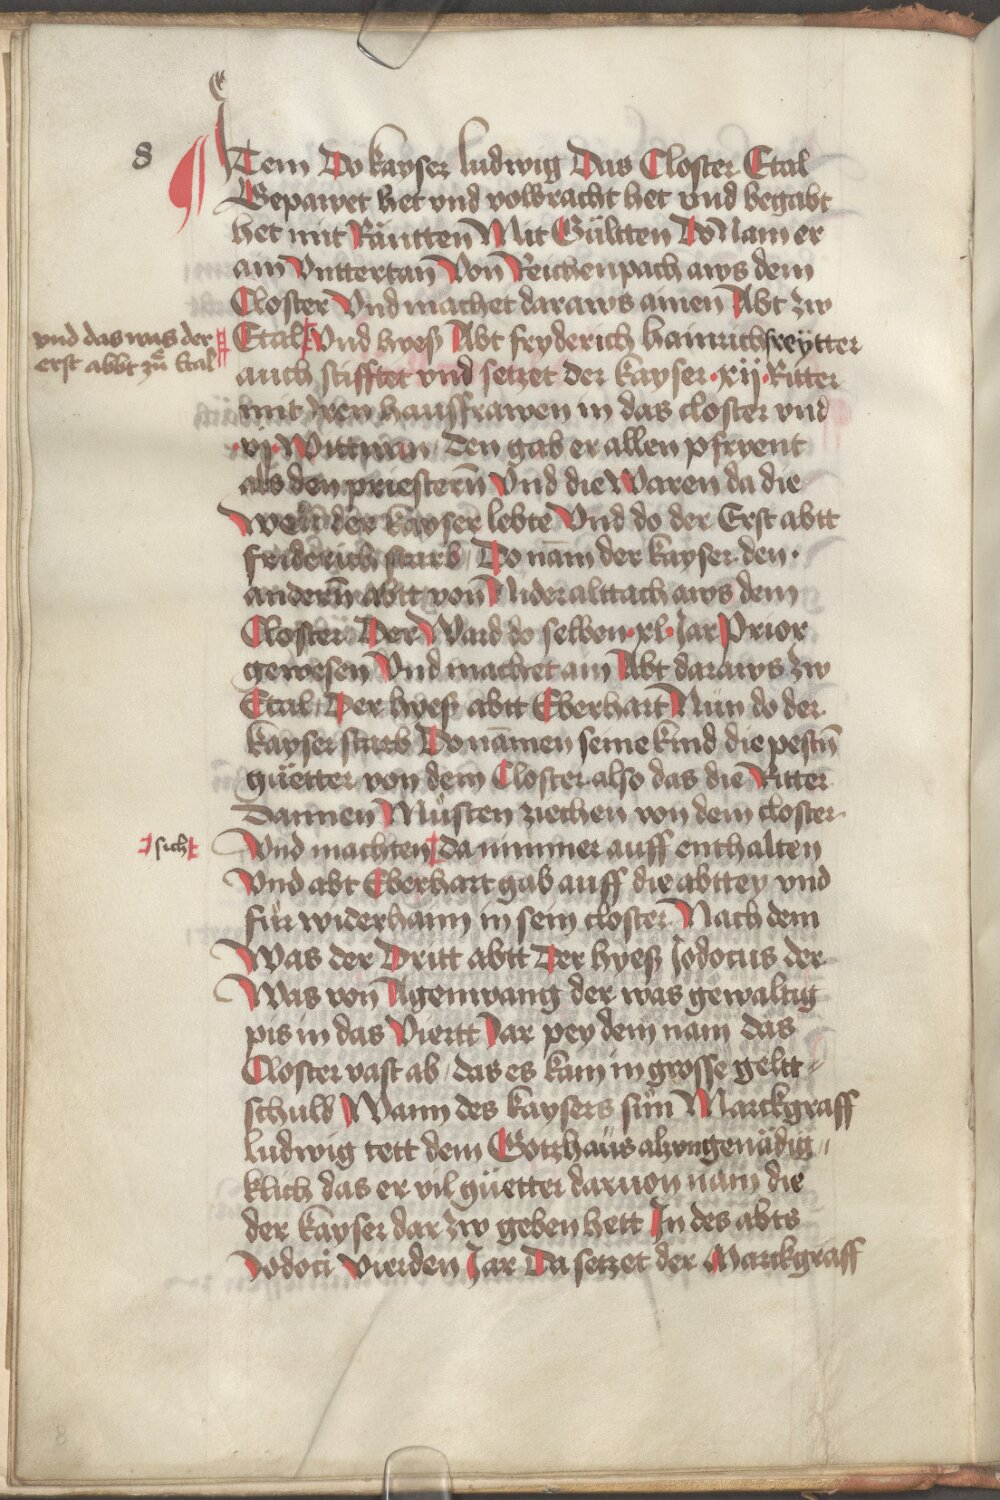 8
Item Do kayser ludwig Das Closter Etal
Gepawet het vnd volbracht het vnd begabt
het mit Räntten Mit Gültten Do Nam er
ain Vnttertan Von Reichenpach aws dem
Closter Vnd machet daraws ainen Abt zw
vnd das was der
erst abbt zů Etal
Etal Vnd hyeß Abt fryderich hainrich freytter
auch stifftet vnd setzet der kayser · xij · Ritter
mit iren hawssfrawen in das closter vnd
· vj · Wittwan / den gab er allen pfrvent
als den priesterñ Vnd die Waren da die
weil der kayser lebte Vnd do der Erst abtt
friderich starb / Do nam der kayser den ·
anderñ abtt von Nideralttach aws dem
Closter Der Ward do selben · xl · Jar Prior
gewesen Vnd machet ain Abt daraws zw
Etal / Der hyeß abtt Eberhart Nün do der
kayser starb Do nāmen seine kind die pestñ
güetter von dem Closter also das die Ritter
Dannen Müsten ziechen von dem closter
sich
Vnd machten da nimmer auff enthalten
Vnd abt Eberhart gab auff die abttey vnd
für widerhaim in sein closter Nach dem
Was der Dritt abtt Der hyeß Jodocus der
Was von Agenwang der was gewaltig
pis in das Viertt Jar pey dem nam das
Closter vast ab / das es kam in grosse geltt
schuld Wann des kaysers sün Marckgraff
ludwig tett dem Gotzhaüs als vngenädig
klich das er vil güetter daruon nam die
der kayser dar zw geben hett In des abts
Jodoci Vierden Jar Da setzet der Marckgraff
8